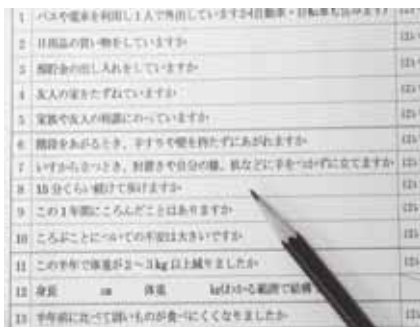 1 バスや電車を利用し1人で外出していますか(自動車・自転車も含みます)
2 日用品の買い物をしていますか
3 預貯金の出し入れをしていますか
4 友人の家をたずねていますか
5 家族や友人の相談にのっていますか
6 階段をあがるとき、手すりや壁を持たずにあがれますか
7 いすから立つとき、肘置きや自分の膝、机などに手をつかずに立てますか
8 15分くらい続けて歩けますか
9 この1年間にころんだことはありますか
10 ころぶことについての不安は大きいですか
11 この半年で体重が2～3kg以上減りましたか
12 身長 cm 体重 kg(わかる範囲で結構
13 半年前に比べて固いものが食べにくくなりましたか